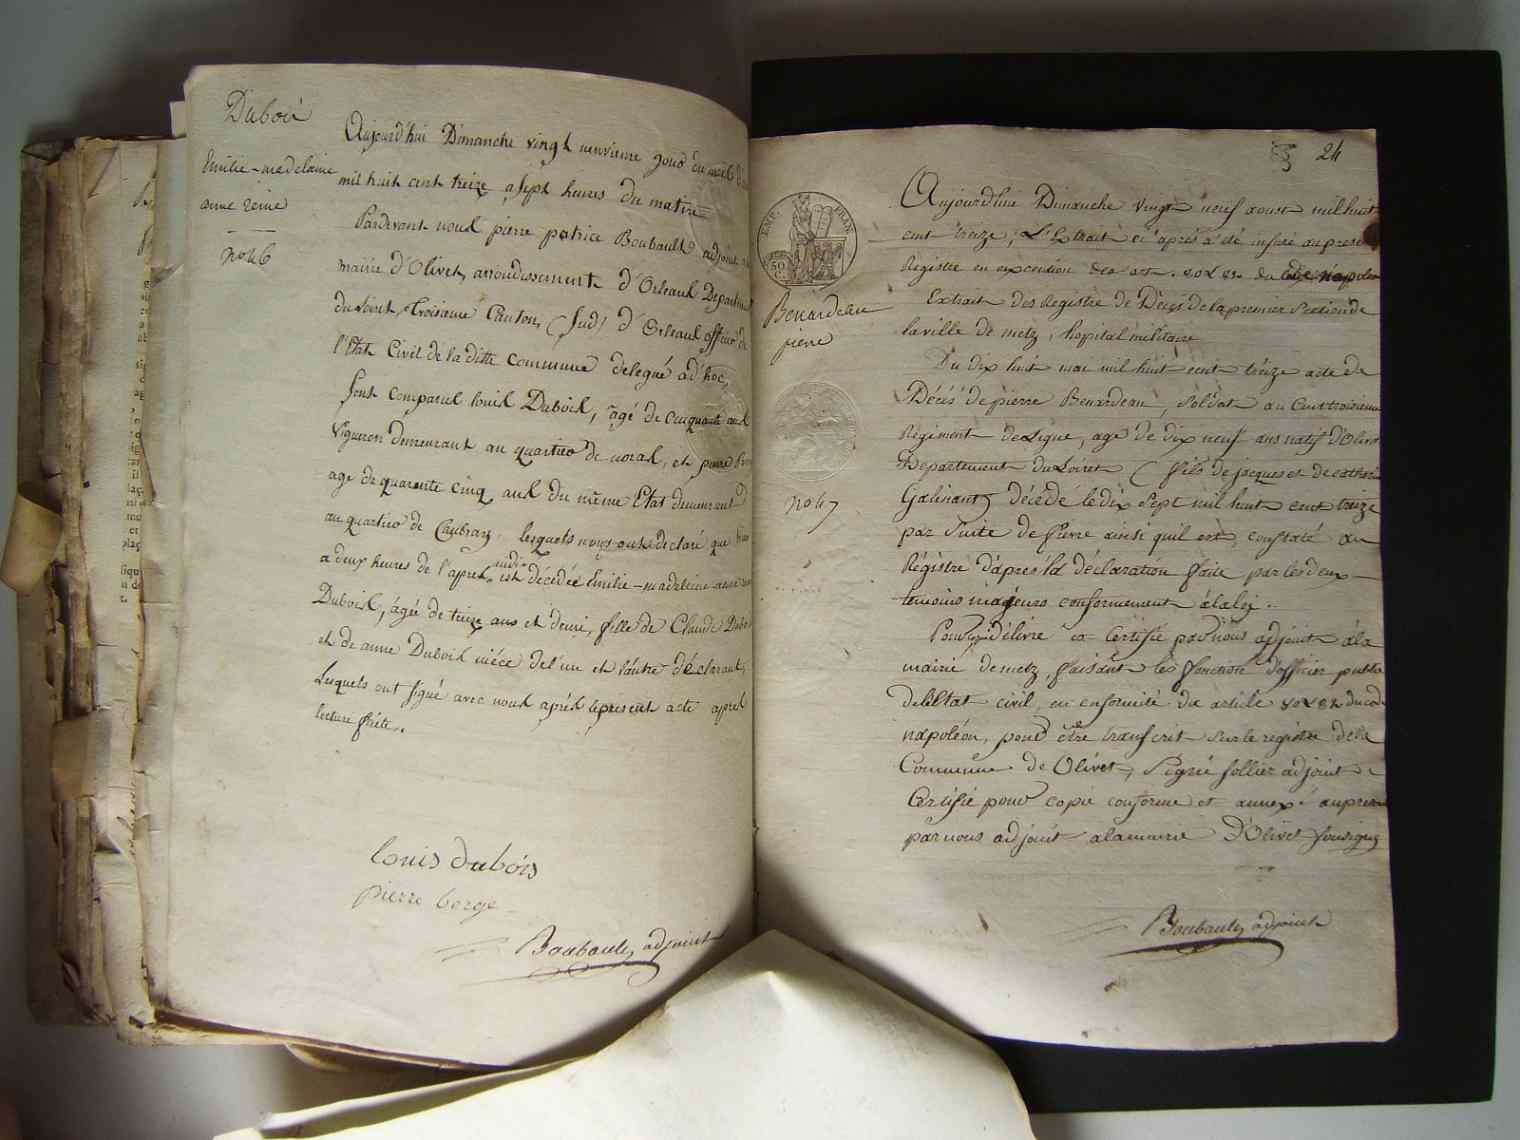 Dubois
Emilie-madelaine
anne reine
no 46
Aujourd'hui Dimanche vingt neuvieme jour du mois
mil huit cent treize, a sept heures du matin
Pardevant nous pierre patrice Boubault adjoint
mairie d'Olivet, arrondissement d'Orleans Departement
du Loiret, Troisieme Canton, (Sud) d'Orleans officier de
l'Etat Civil de la ditte commune delegué ad'hoc,
sont comparus louis Dubois, âgé de cinquante ans
Vigneron demeurant au quartier de noras, et pierre
age de quarante cinq ans du même Etat demeurant
au quartier de Caubray, lesquels nous ont declaré que
a deux heures de l'apres midi est décedée Emilie-madeleine anne
Dubois, âgée de treize ans et demi, fille de Claude Dubois
et de anne Dubois niéce de l'un et l'autre déclarant,
Lesquels ont signé avec nous aprés le present acte aprés
lecture faite.
louis dubois
pierre berge
Boubault, adjoint
24
EMP. FRAN.
50
Benardeau
pierre
no 47
Aujourd'hui Dimanche vingt neuf aoust mil huit
cent treize, L'Extrait ci aprés a été inséré au present
Registre en execution des art. 80 & 82 du code napoleon
Extrait des Registre de Décés de la premier Section de
la ville de metz, hopital militaire
Du dix huit mai mil huit cent tréize acte de
Décés de pierre Benardeau, soldat au Cent troisieme
Régiment de Ligne, age de dix neuf ans natif d'Olivet
Departement du Loiret (fils de jacques et de catherine
Galinant) décédé le dix sept mil huit cent treize
par suite de fievre ainsi quil est constaté au
Régistre d'aprés la déclaration faite par les deux
temoins majeurs conformement à la loi.
Pour délivré et Certifié par nous adjoint à la
mairie de metz, faisant les fonction d'officier public
de l'Etat civil, en conformité du article 80 & 82 du code
napoléon, pour être transcrit sur le registre de la
Commune de Olivet, Signé follier adjoint
Certifié pour copie conforme et annexé au present
par nous adjoint a la mairie D'Olivet soussigné
Boubault, adjoint